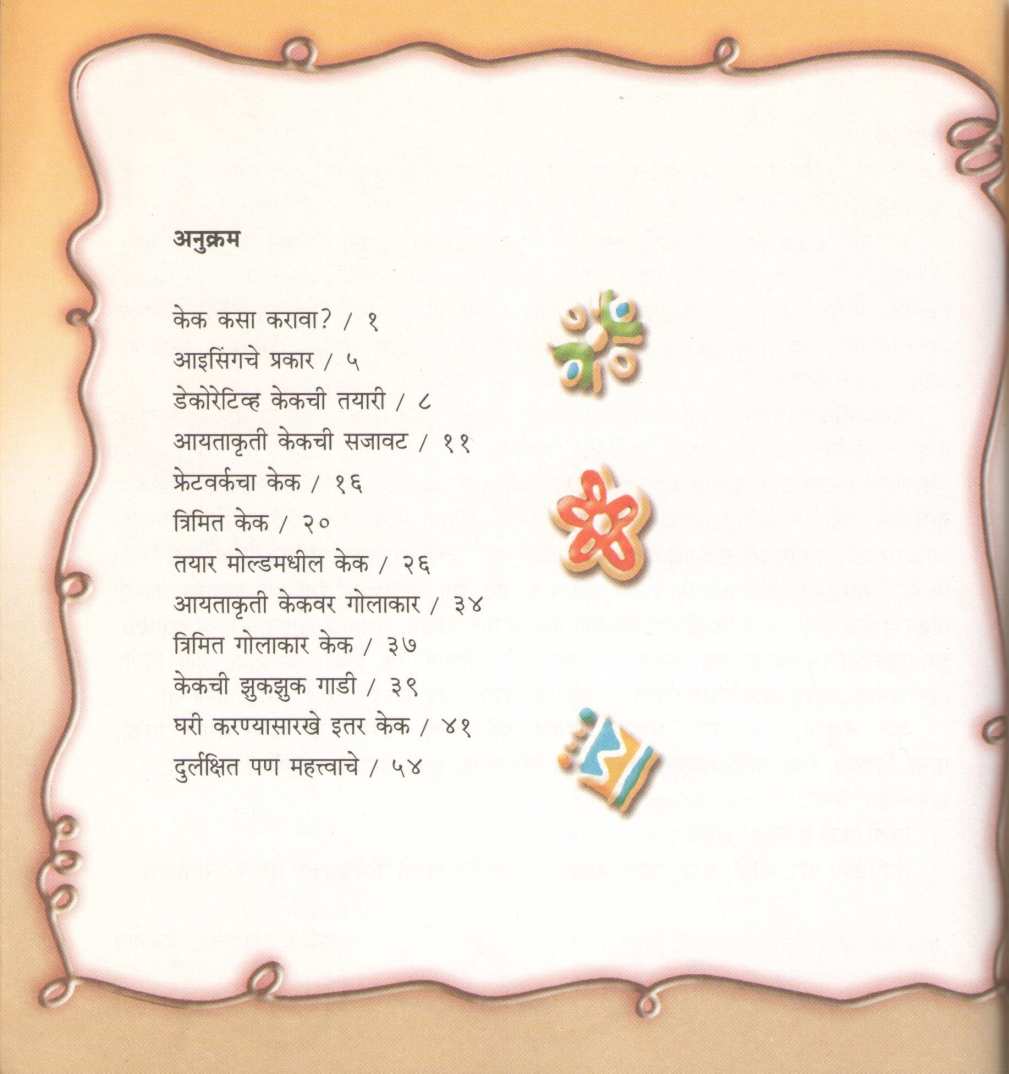 अनुक्रम
केक कसा करावा? / १
आइसिंगचे प्रकार / ५
डेकोरेटिव्ह केकची तयारी / ८
आयताकृती केकची सजावट / ११
फ्रेटवर्कचा केक / १६
त्रिमित केक / २०
तयार मोल्डमधील केक / २६
आयताकृती केकवर गोलाकार / ३४
त्रिमित गोलाकार केक / ३७
केकची झुकझुक गाडी / ३९
घरी करण्यासारखे इतर केक / ४१
दुर्लक्षित पण महत्त्वाचे / ५४